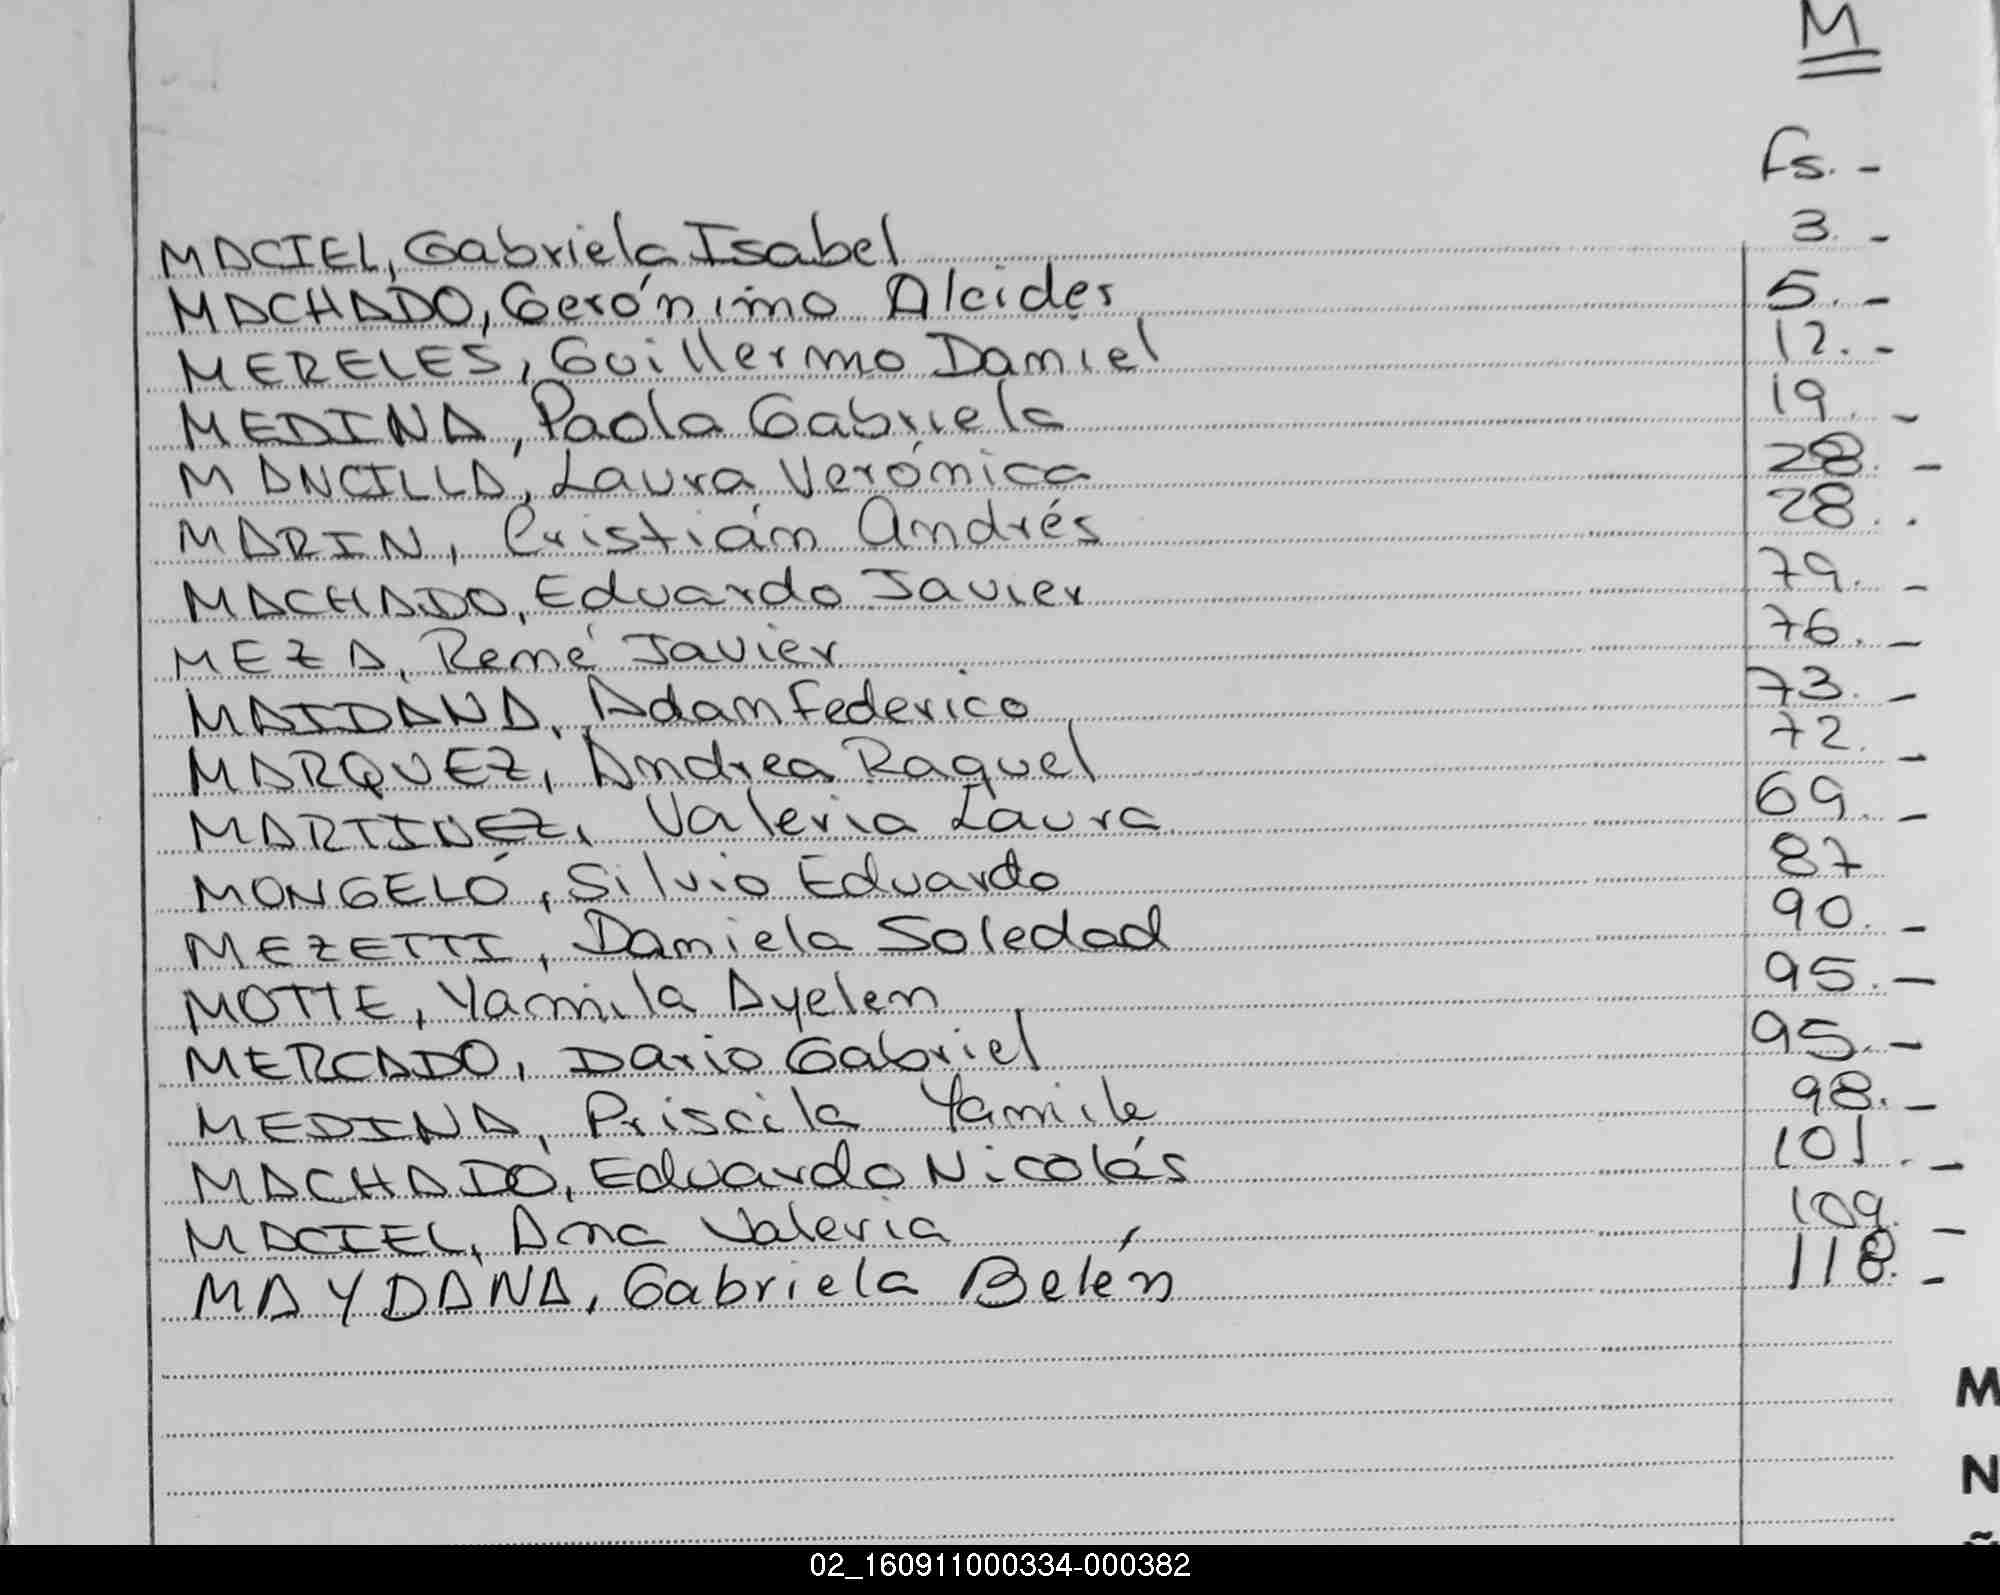 M
Fs. -
MACIEL, Gabriela Isabel 3. -
MACHADO, Gerónimo Alcides 5. -
MERELES, Guillermo Daniel 12. -
MEDINA, Paola Gabriela 19. -
MANCILLA, Laura Verónica 28. -
MARIN, Cristián Andrés 28. .
MACHADO, Eduardo Javier 79. -
MEZA, René Javier 76. -
MAIDANA, Adam Federico 73. -
MARQUEZ, Andrea Raquel 72. -
MARTINEZ, Valeria Laura 69. -
MONGELÓ, Silvio Eduardo 87
MEZETTI, Daniela Soledad 90. -
MOTTE, Yamila Ayelen 95. -
MERCADO, Dario Gabriel 95. -
MEDINA, Priscila Yamile 98. -
MACHADO, Eduardo Nicolás 101. -
MACIEL, Ana Valeria 109. -
MAYDANA, Gabriela Belén 118. -
M
N
02_160911000334-000382